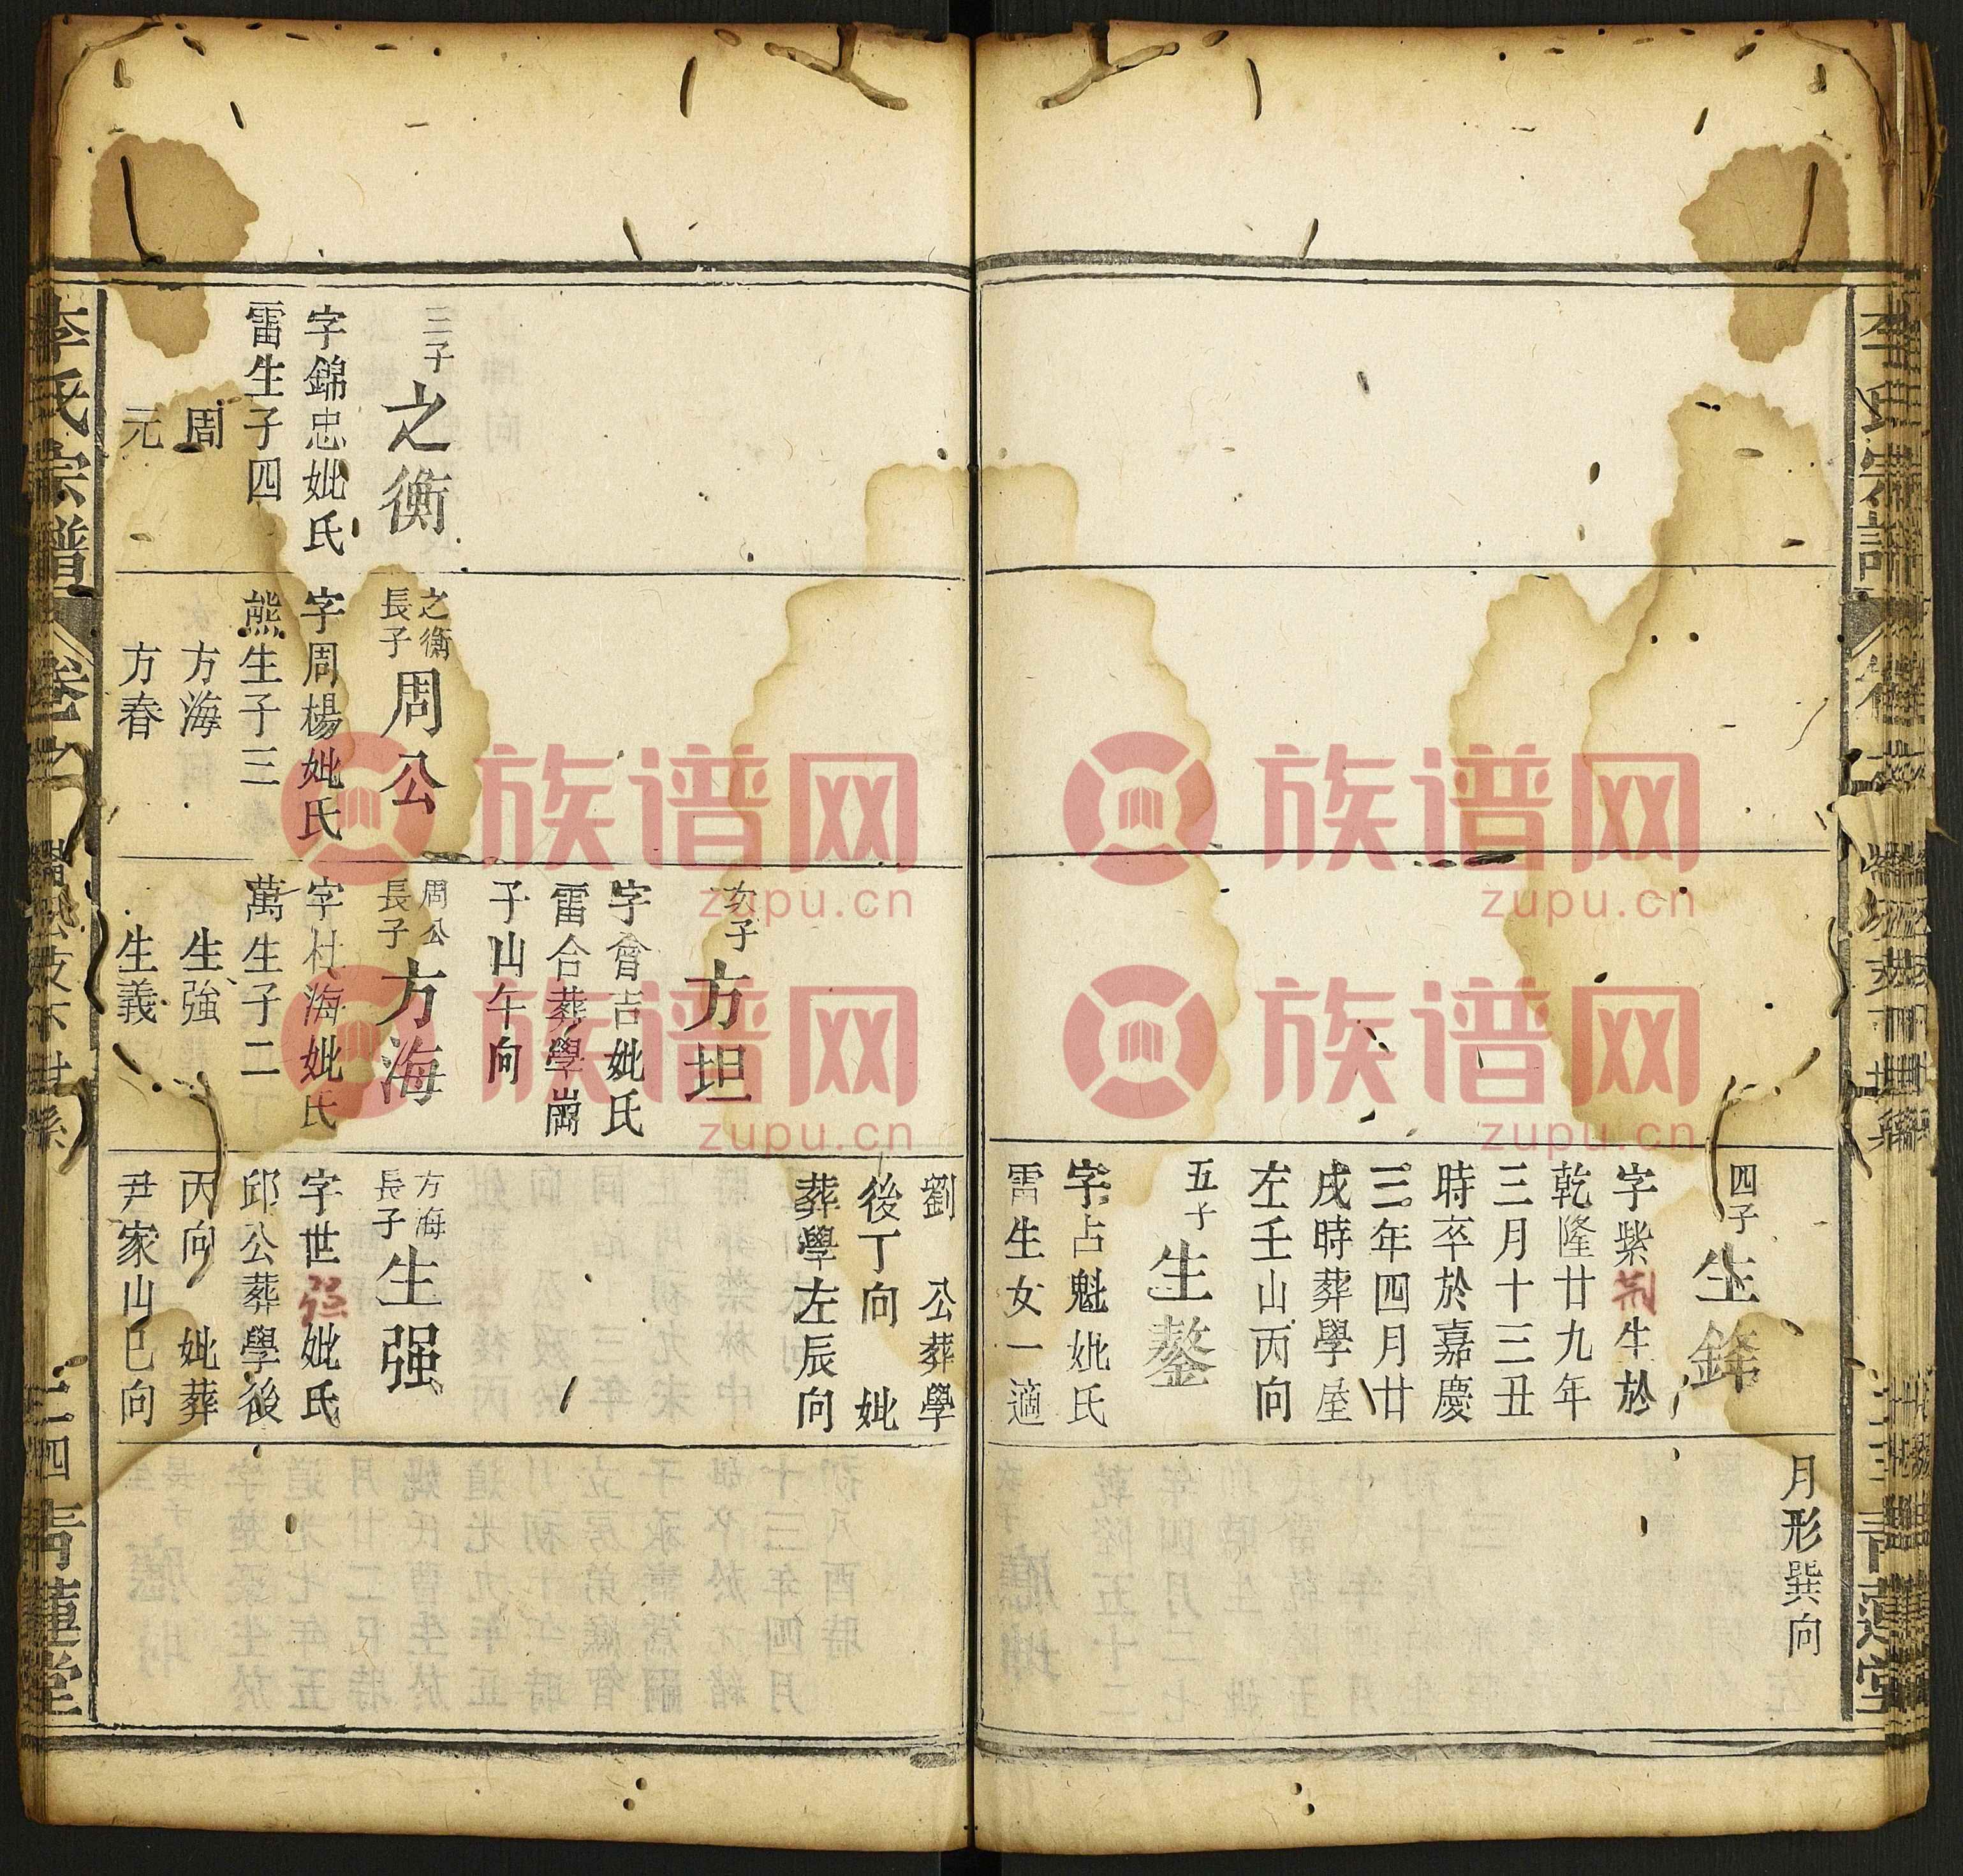 月形巽向
四子
生鋒
字紫荊生於
乾隆廿九年
三月十三丑
時卒於嘉慶
三年四月廿
戌時葬學屋
左壬山丙向
五子
生鏊
字占魁妣氏
雷生女一適
劉　公葬學
後丁向　妣
葬學左辰向
次子
方坦
字會吉妣氏
雷合葬學崗
子山午向
三子
之衡
字錦忠妣氏
雷生子四
周
元
之衡
長子
周公
字周楊妣氏
熊生子三
方海
方春
周公
長子
方海
字杜海妣氏
萬生子二
生強
生義
方海
長子
生强
字世强妣氏
邱公葬學後
丙向　妣葬
尹家山巳向
李氏宗譜
三四　青蓮堂
族谱网
zupu.cn
族谱网
zupu.cn
族谱网
zupu.cn
族谱网
zupu.cn